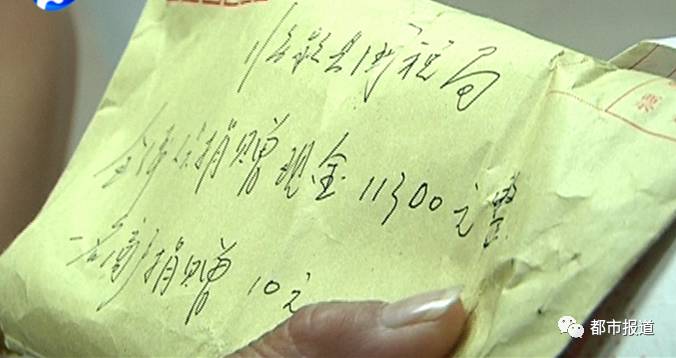 临颍县国税局
全体捐赠现金11300元整
捐赠10元
都市报道